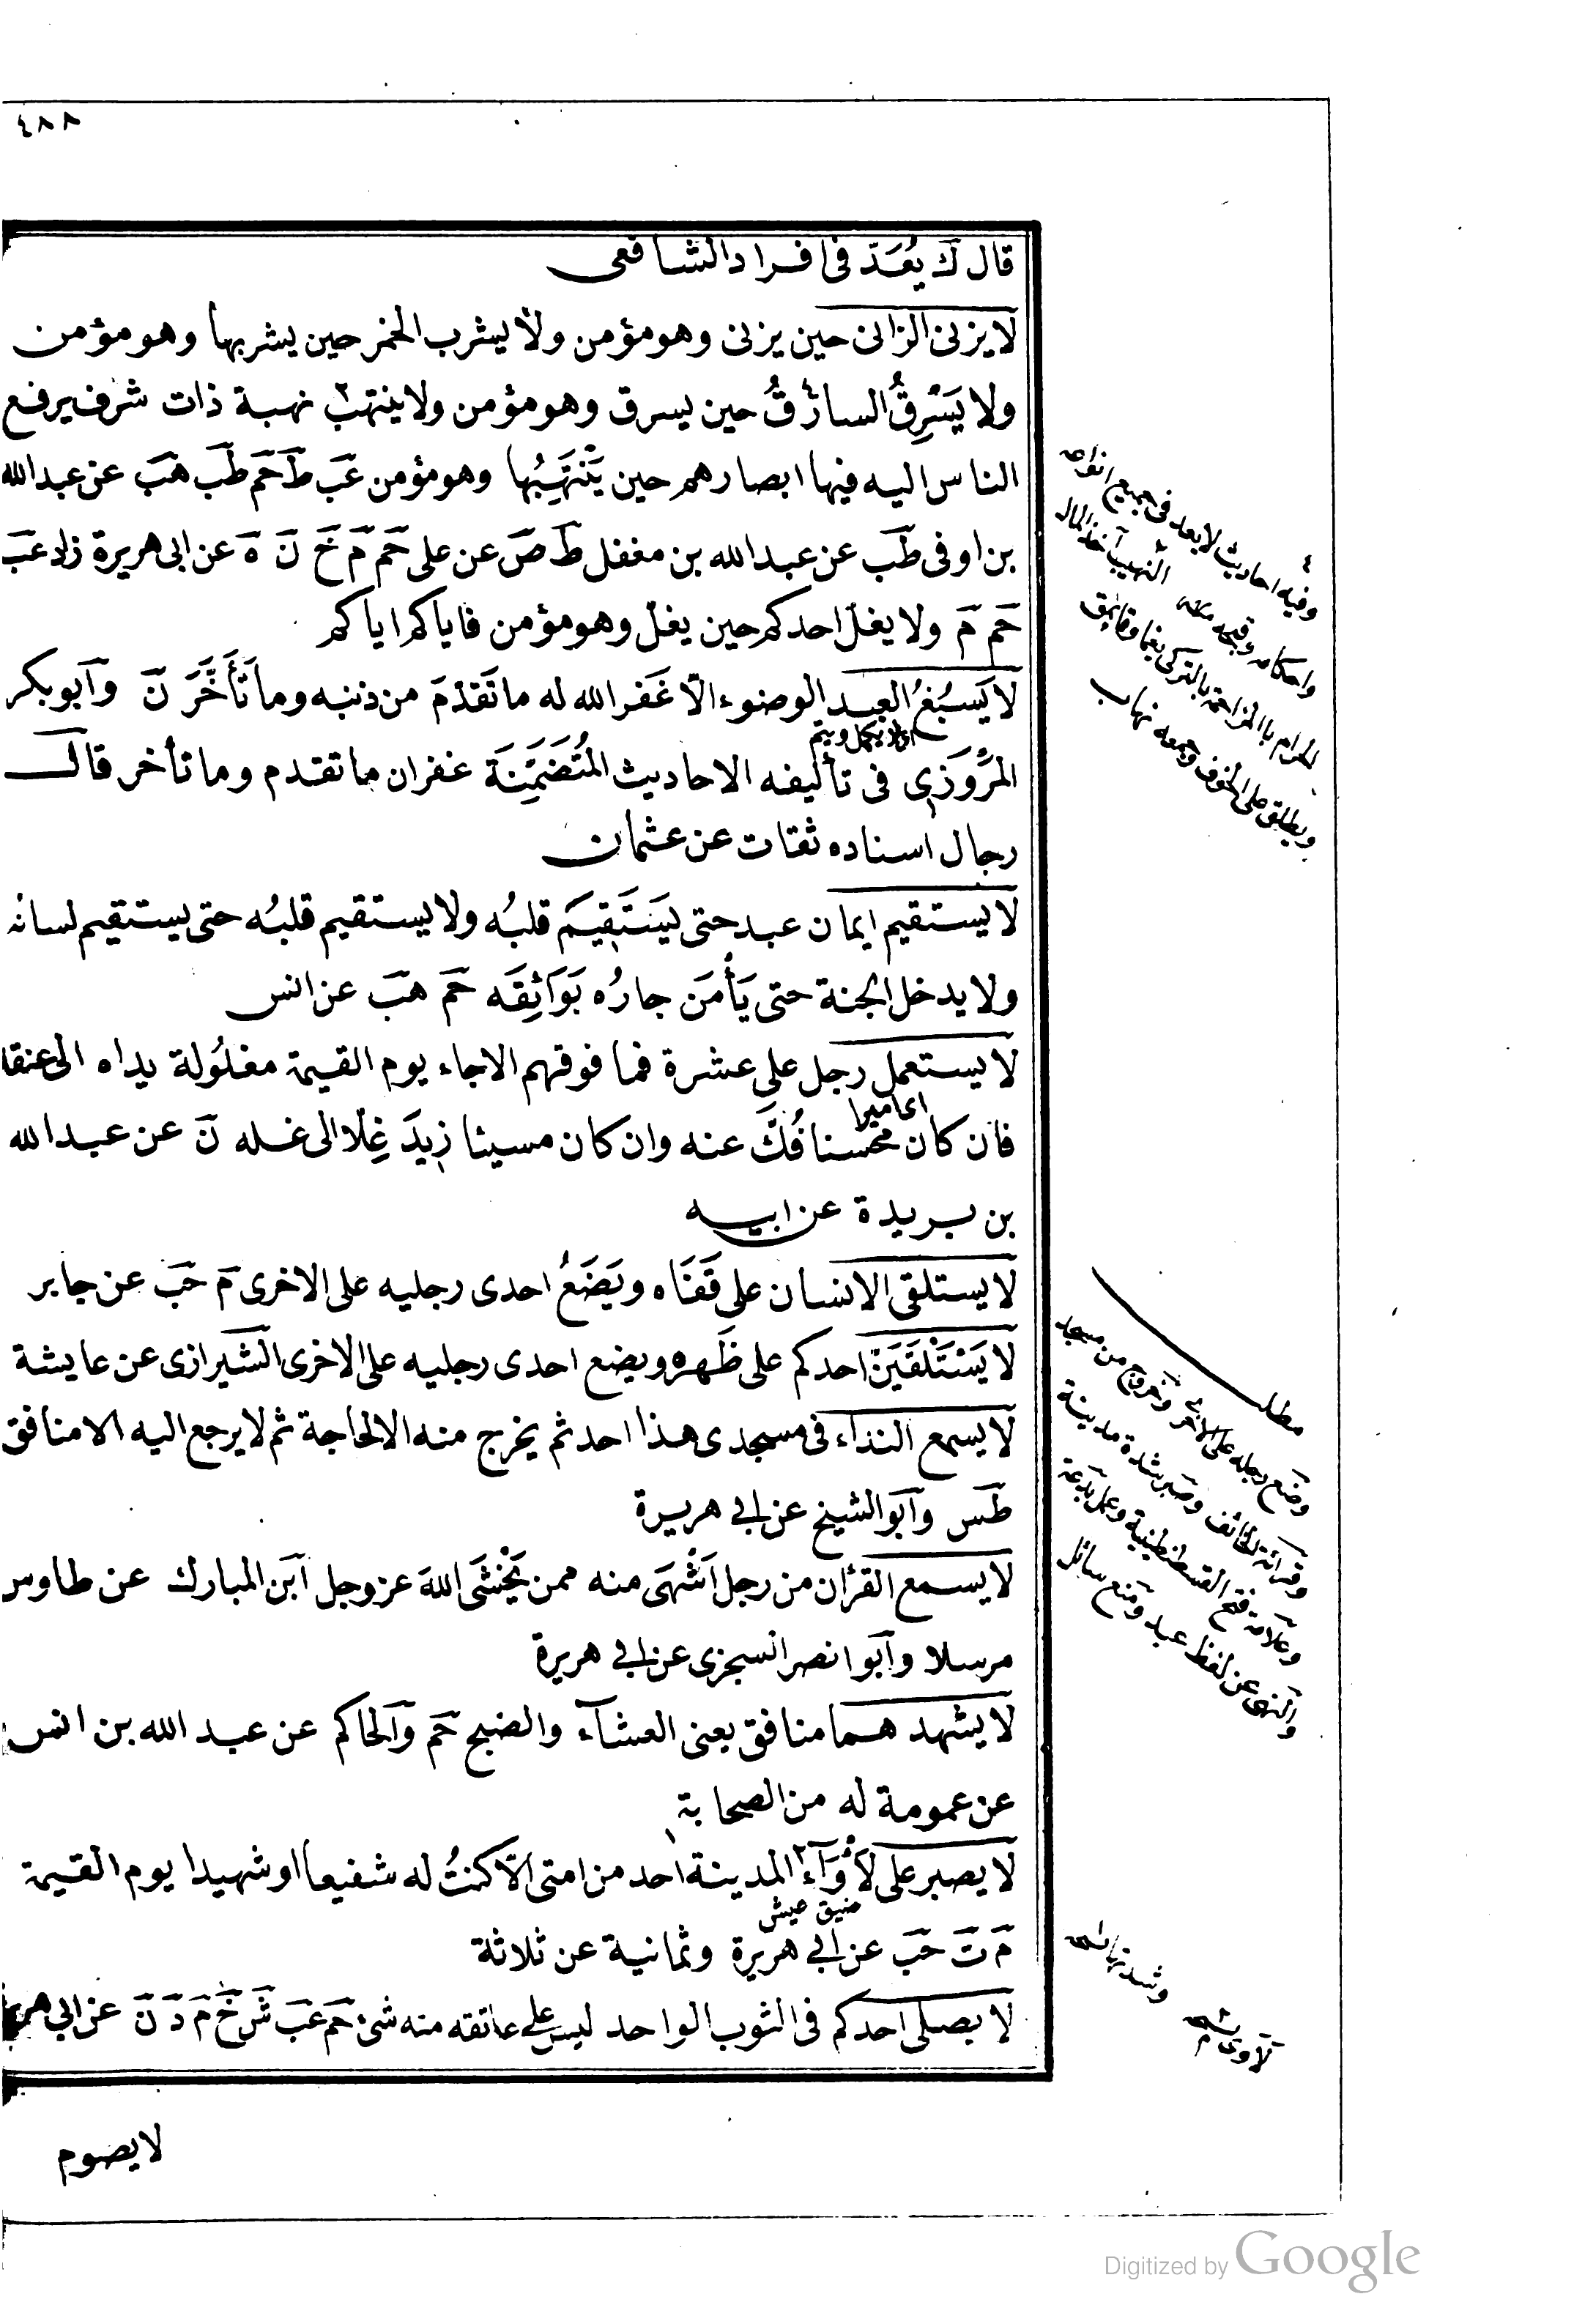 ٤٨٨
قال ك يُعَدّ فى افراد الشافعى
لا يزنى الزانى حين يزنى وهو مؤمن ولا يشرب الخمر حين يشربها وهو مؤمن
ولا يَسْرِقُ السارقُ حين يسرق وهو مؤمن ولا ينتهب نهبة ذات شرف يرفع
الناس اليه فيها ابصارهم حين يَنْتَهِبُها وهو مؤمن عب ط حم طب هب عن عبد الله
بن اوفى طب عن عبد الله بن مغفل ط ص عن على حم م خ ن ه عن ابى هريرة زاد عب
حم م ولا يغل احدكم حين يغل وهو مؤمن فاياكم اياكم
لا يَسْبُغُ العبد الوضوء الّا غَفر الله له ما تَقدّمَ من ذنبه وما تَأَخَّرَ ن وابو بكر
اى لا يكمل ويتم
المَرْوَزِى فى تأليفه الاحاديث المُتَضَمِّنَة غفران ما تقدم وما تأخر قال
رجال اسناده ثقات عن عثمان
لا يستقيم ايمان عبد حتى يَستَقِيمَ قلبُه ولا يستقيم قلبُه حتى يستقيم لسانه
ولا يدخل الجنة حتى يَأْمَن جارُه بَوَائِقَه حم هب عن انس
لا يستعمل رجل على عشرة فما فوقهم الا جاء يوم القيمة مغلُولة يداه الى عنقه
اى اميرا
فان كان محسنا فُكَّ عنه وان كان مسيئا زِيدَ غِلّا الى غله ن عن عبد الله
بن بريدة عن ابيه
لا يستلقى الانسان على قَفَاه ويَضَعُ احدى رجليه على الاخرى م حب عن جابر
لا يَسْتَلقَيَنّ احدكم على ظَهره ويضع احدى رجليه على الاخرى الشيرازى عن عايشة
لا يسمع النداء فى مسجدى هذا احد ثم يخرج منه الا لحاجة ثم لا يرجع اليه الا منافق
طس وابو الشيخ عن ابى هريرة
لا يسمع القرْان من رجل اَشْهَى منه ممن يَخْشَى اللهَ عز وجل ابن المبارك عن طاوس
مرسلا وابوا نصر السجزى عن ابى هريرة
لا يشهد هما منافق يعنى العشاء والصبح حم والحاكم عن عبد الله بن انس
عن عمومة له من الصحابة
لا يصبر على لأْوَاء المدينة احد من امتى الّا كنتُ له شفيعا او شهيدا يوم القيمة
ضيق عيش
م ت حب عن ابى هريرة وثمانية عن ثلاثة
لا يصلى احدكم فى الثوب الواحد ليس على عاتقه منه شئ حم عب ش خ م د ن عن ابى
لا يصوم
وفيه احاديث لا يعد فى جميع انواعه
واحكامه النهيب اخذ المال
ويطلق على الخوف وجمعه نهاب
مطلب
وضع رجله على الاخرى وخروج من مسجد
وقرائة الخائف وصبر بشدة مدينة
وعلامة فتح القسطنطينية وعمل بدعة
والنهى عن لفظ عبد ومنع سائل
Digitized by Google